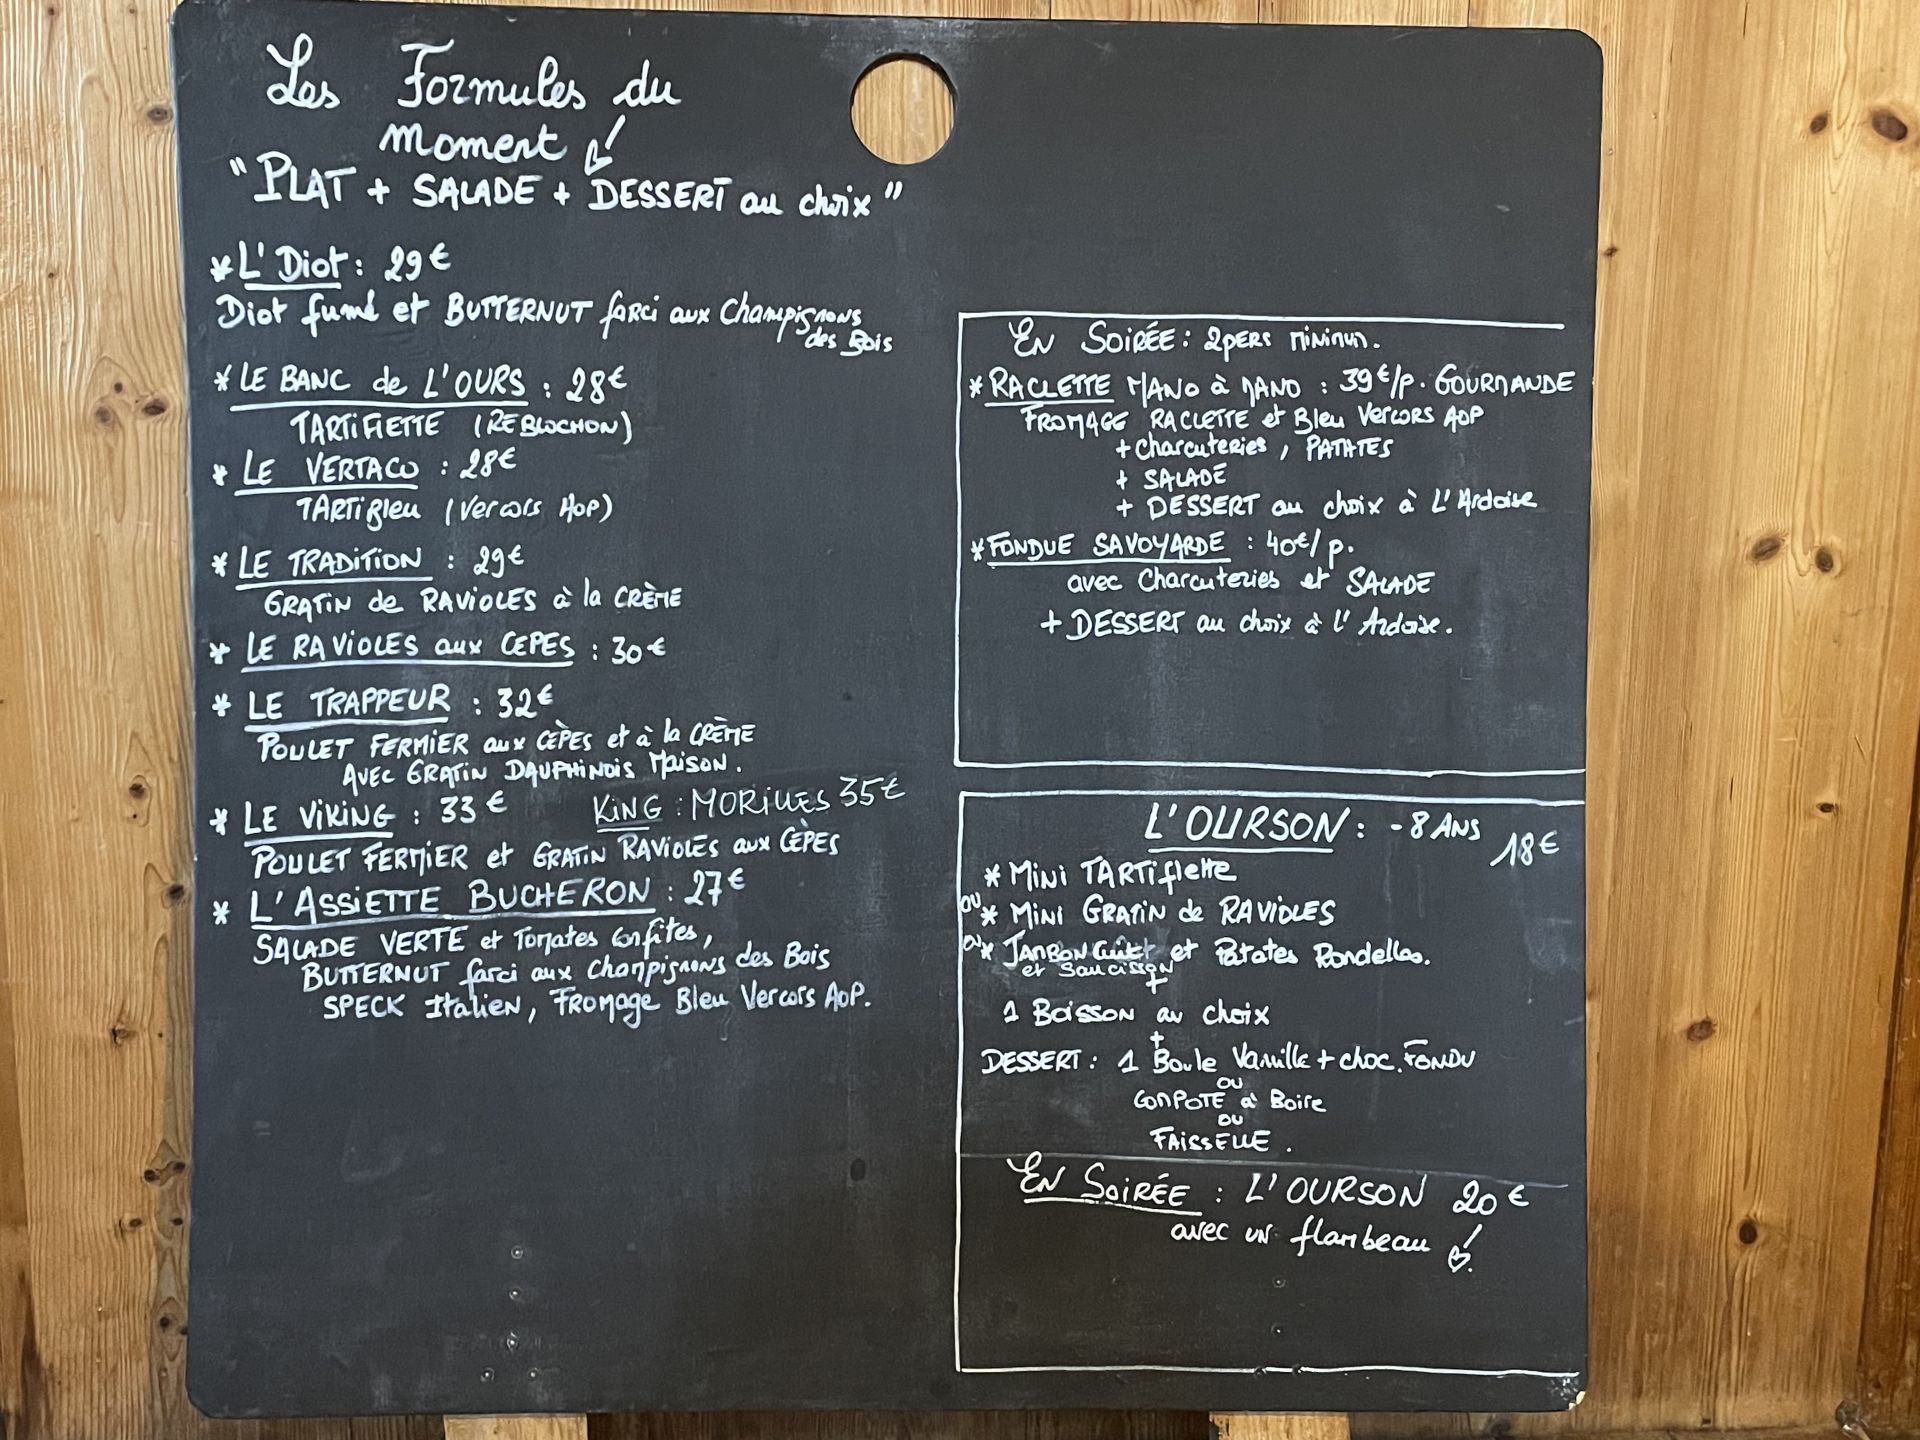 Les Formules du
moment
"PLAT + SALADE + DESSERT au choix"
* L'Diot : 29€
Diot fumé et BUTTERNUT farci aux Champignons
des Bois
* LE BANC de L'OURS : 28€
TARTIFIETTE (REBLOCHON)
* LE VERTACO : 28€
TARTiBleu (Vercors AOP)
* LE TRADITION : 29€
GRATIN de RAVIOLES à la CRÈME
* LE RAVIOLES aux CEPES : 30€
* LE TRAPPEUR : 32€
POULET FERMIER aux CÈPES et à la CRÈME
AVEC GRATIN DAUPHINOIS MAISON.
* LE VIKING : 33€ KING : MORILLES 35€
POULET FERMIER et GRATIN RAVIOLES aux CÈPES
* L'ASSIETTE BUCHERON : 27€
SALADE VERTE et Tomates Confites,
BUTTERNUT farci aux Champignons des Bois
SPECK Italien, FROMAGE Bleu Vercors AOP.
EN SOIRÉE : 2PERS MINIMUM.
* RACLETTE MANO à MANO : 39€/p. GOURMANDE
FROMAGE RACLETTE et Bleu Vercors AOP
+ Charcuteries, PATATES
+ SALADE
+ DESSERT au choix à L'Ardoise
* FONDUE SAVOYARDE : 40€/p.
avec Charcuteries et SALADE
+ DESSERT au choix à l'Ardoise.
L'OURSON : -8 ANS 18€
* MINI TARTIFLETTE
OU * MINI GRATIN de RAVIOLES
OU * JAMBON Cuit et Patates Rondelles.
et Saucisson
+
1 BOISSON au choix
+
DESSERT : 1 Boule Vanille + choc. FONDU
OU
COMPOTE à Boire
OU
FAISSELLE.
EN SOIRÉE : L'OURSON 20€
avec un flambeau